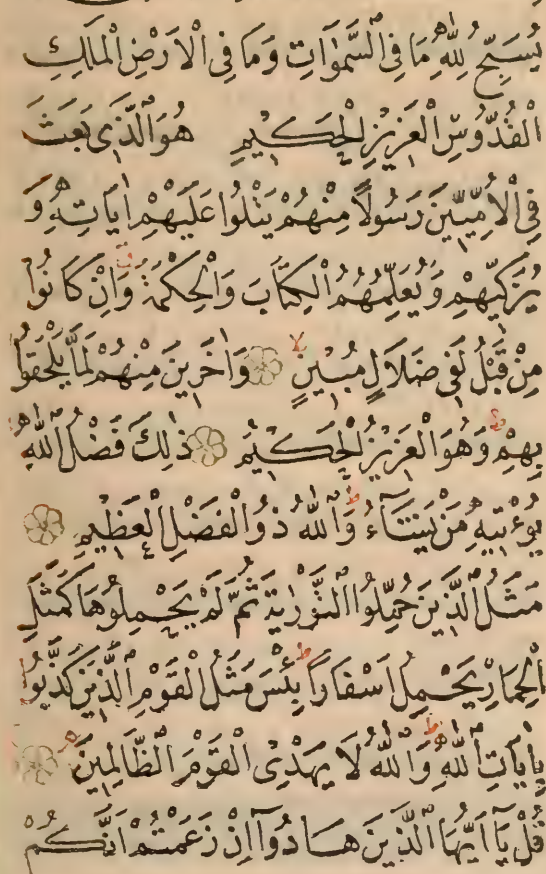 يُسَبِّحُ لِلّٰهِ مَا فِى السَّمٰوَاتِ وَمَا فِى الْاَرْضِ الْمَلِكِ
الْقُدُّوسِ الْعَزِيزِ الْحَكِيمِ هُوَ الَّذِى بَعَثَ
فِى الْاُمِّيّٖنَ رَسُولًا مِنْهُمْ يَتْلُوا عَلَيْهِمْ اٰيَاتِهٖ وَ
يُزَكِّيهِمْ وَيُعَلِّمُهُمُ الْكِتَابَ وَالْحِكْمَةَ ق وَاِنْ كَانُوا
مِنْ قَبْلُ لَفِى ضَلَالٍ مُبِينٍ لا وَاٰخَرِينَ مِنْهُمْ لَمَّا يَلْحَقُوا
بِهِمْ ط وَهُوَ الْعَزِيزُ الْحَكِيمُ ذٰلِكَ فَضْلُ اللّٰهِ
يُؤْتِيهِ مَنْ يَشَاءُ ط وَاللّٰهُ ذُو الْفَضْلِ الْعَظِيمِ
مَثَلُ الَّذِينَ حُمِّلُوا التَّوْرٰيةَ ثُمَّ لَمْ يَحْمِلُوهَا كَمَثَلِ
الْحِمَارِ يَحْمِلُ اَسْفَارًا ط بِئْسَ مَثَلُ الْقَوْمِ الَّذِينَ كَذَّبُوا
بِاٰيَاتِ اللّٰهِ ط وَاللّٰهُ لَا يَهْدِى الْقَوْمَ الظَّالِمِينَ
قُلْ يَا اَيُّهَا الَّذِينَ هَادُوا اِنْ زَعَمْتُمْ اَنَّكُمْ